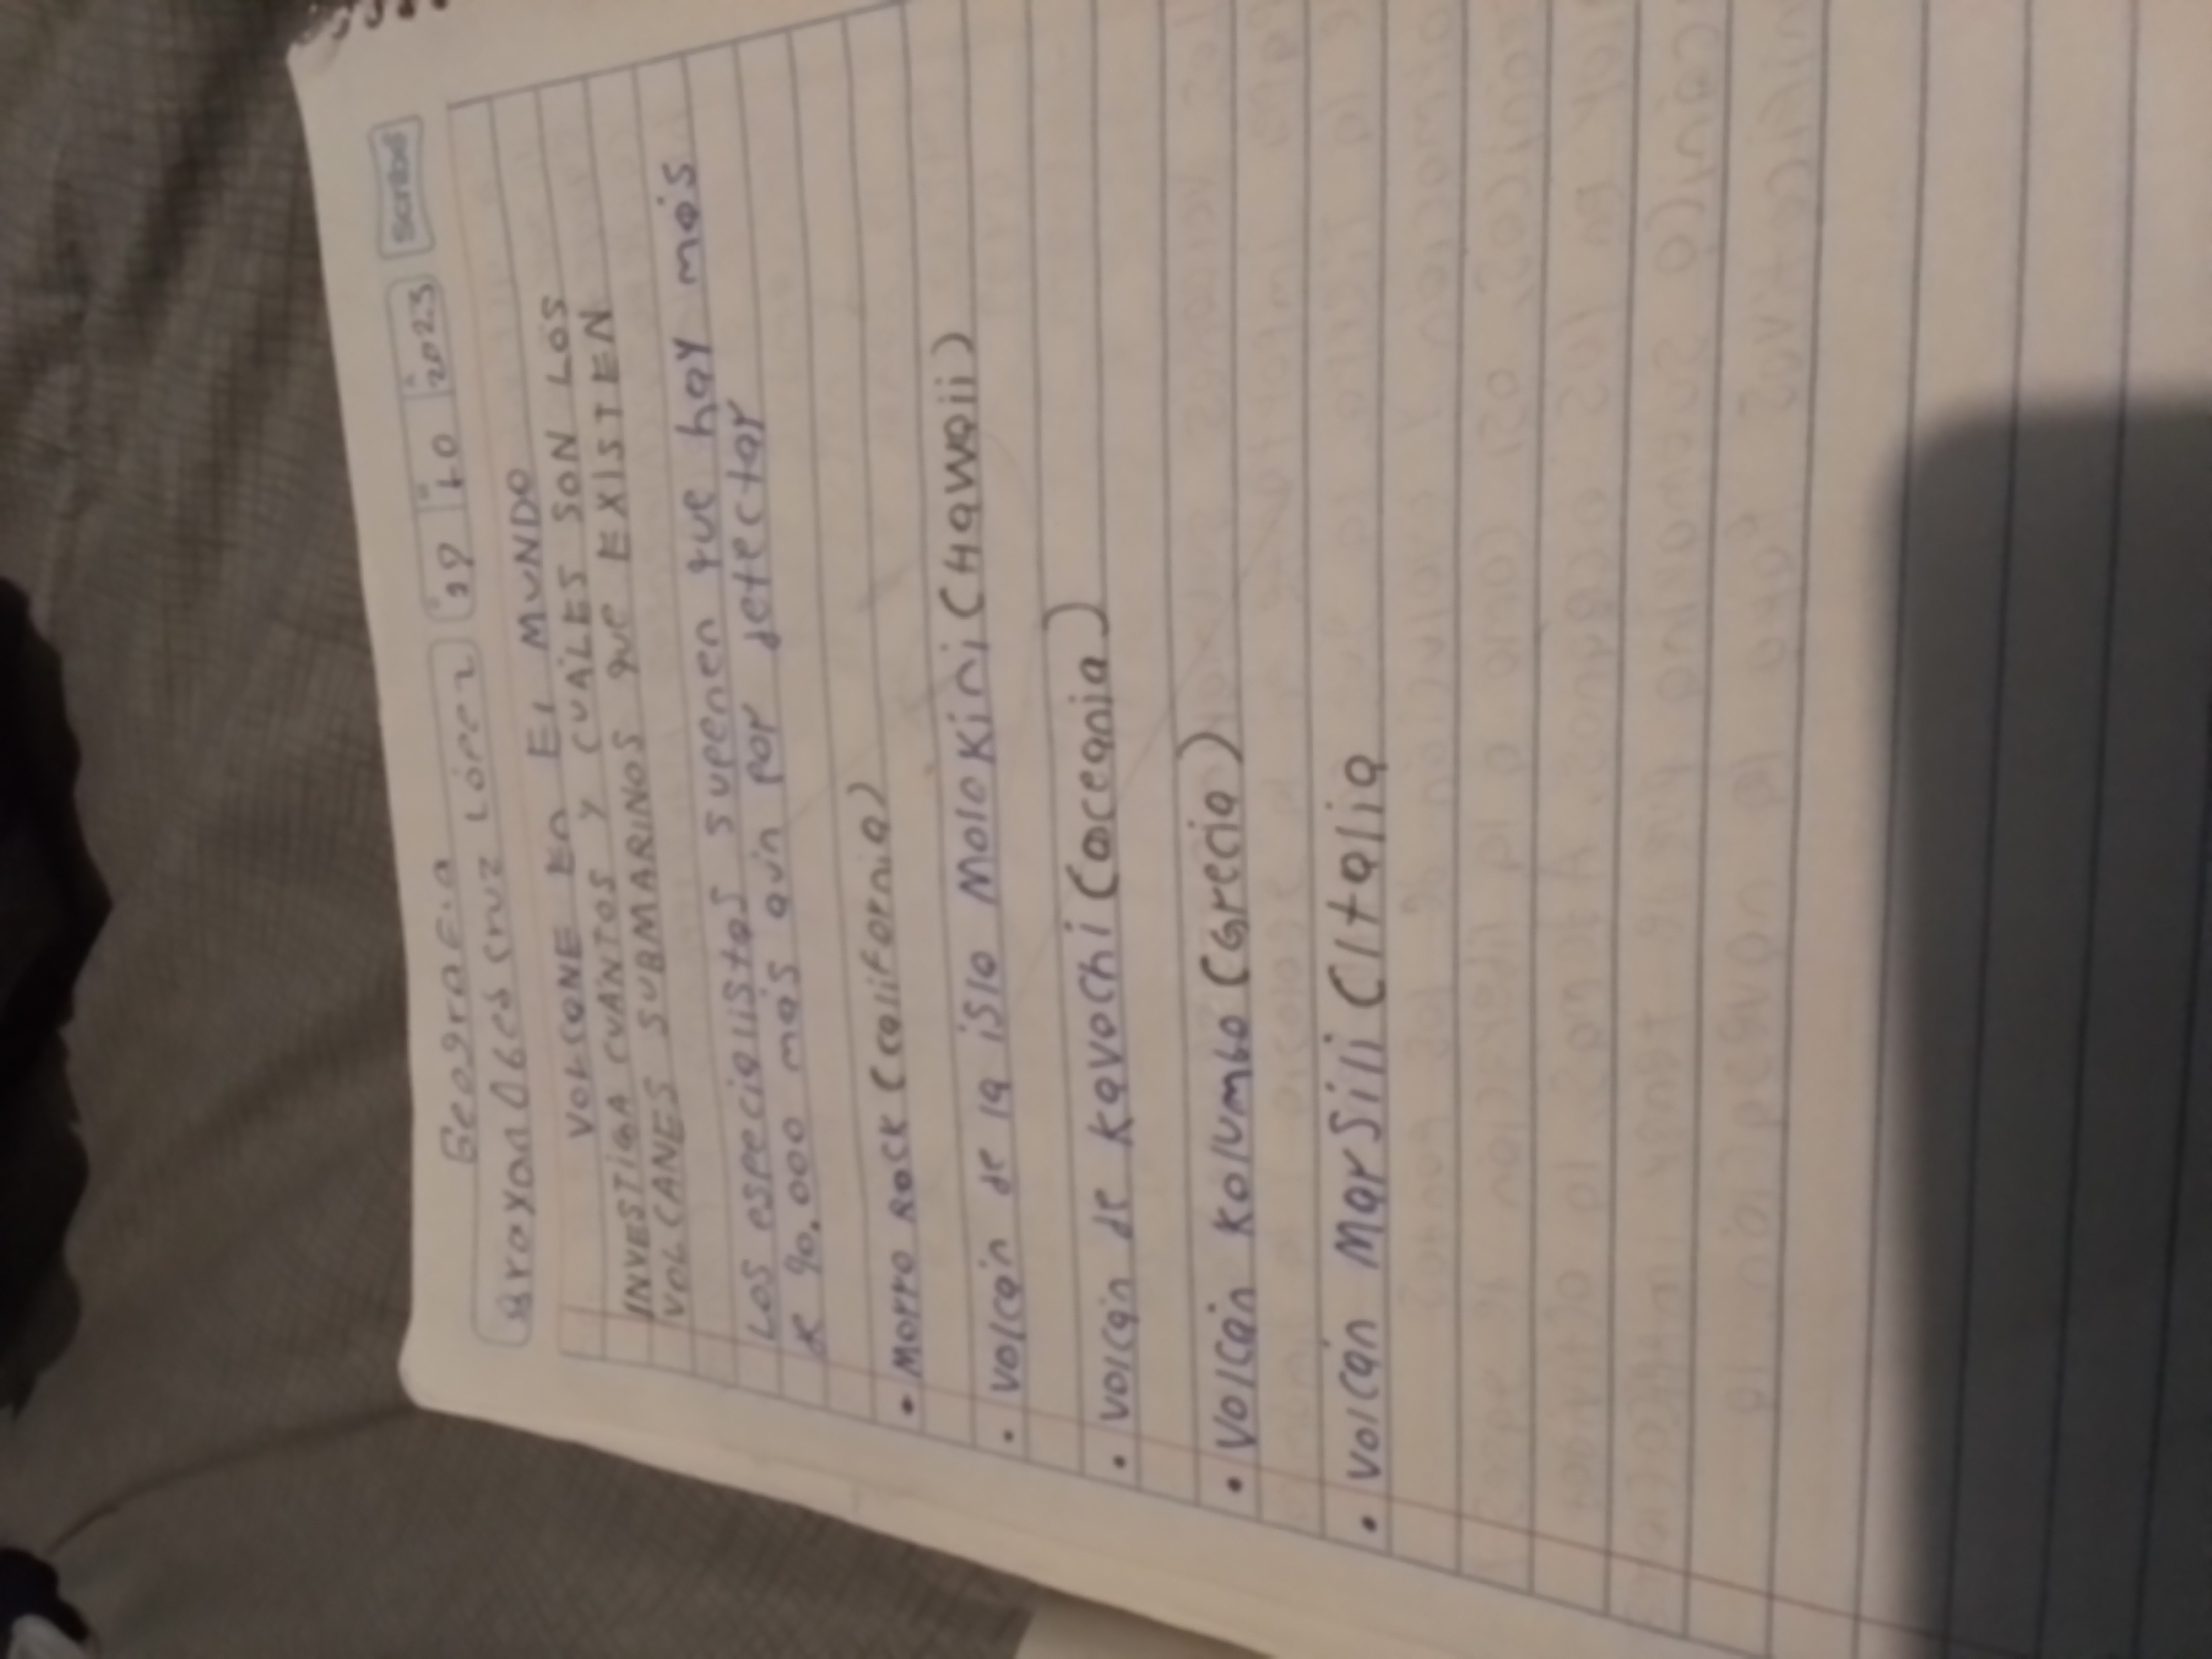 Geografia
Brayan Abcs cruz López 29 10 2023 Scribe
VOLCONE En El MUNDO
INVESTIGA CUÁNTOS Y CUÁLES SON LOS
VOLCANES SUBMARINOS que EXISTEN
Los especialistas supenen que hay más
90.000 más aún por detectar
• Morro Rock (California)
• Volcán de la isla Molokini (Hawaii)
• Volcán de kavochi (occeania)
• Volcán kolumbo (Grecia)
• Volcán Marsili (Italia